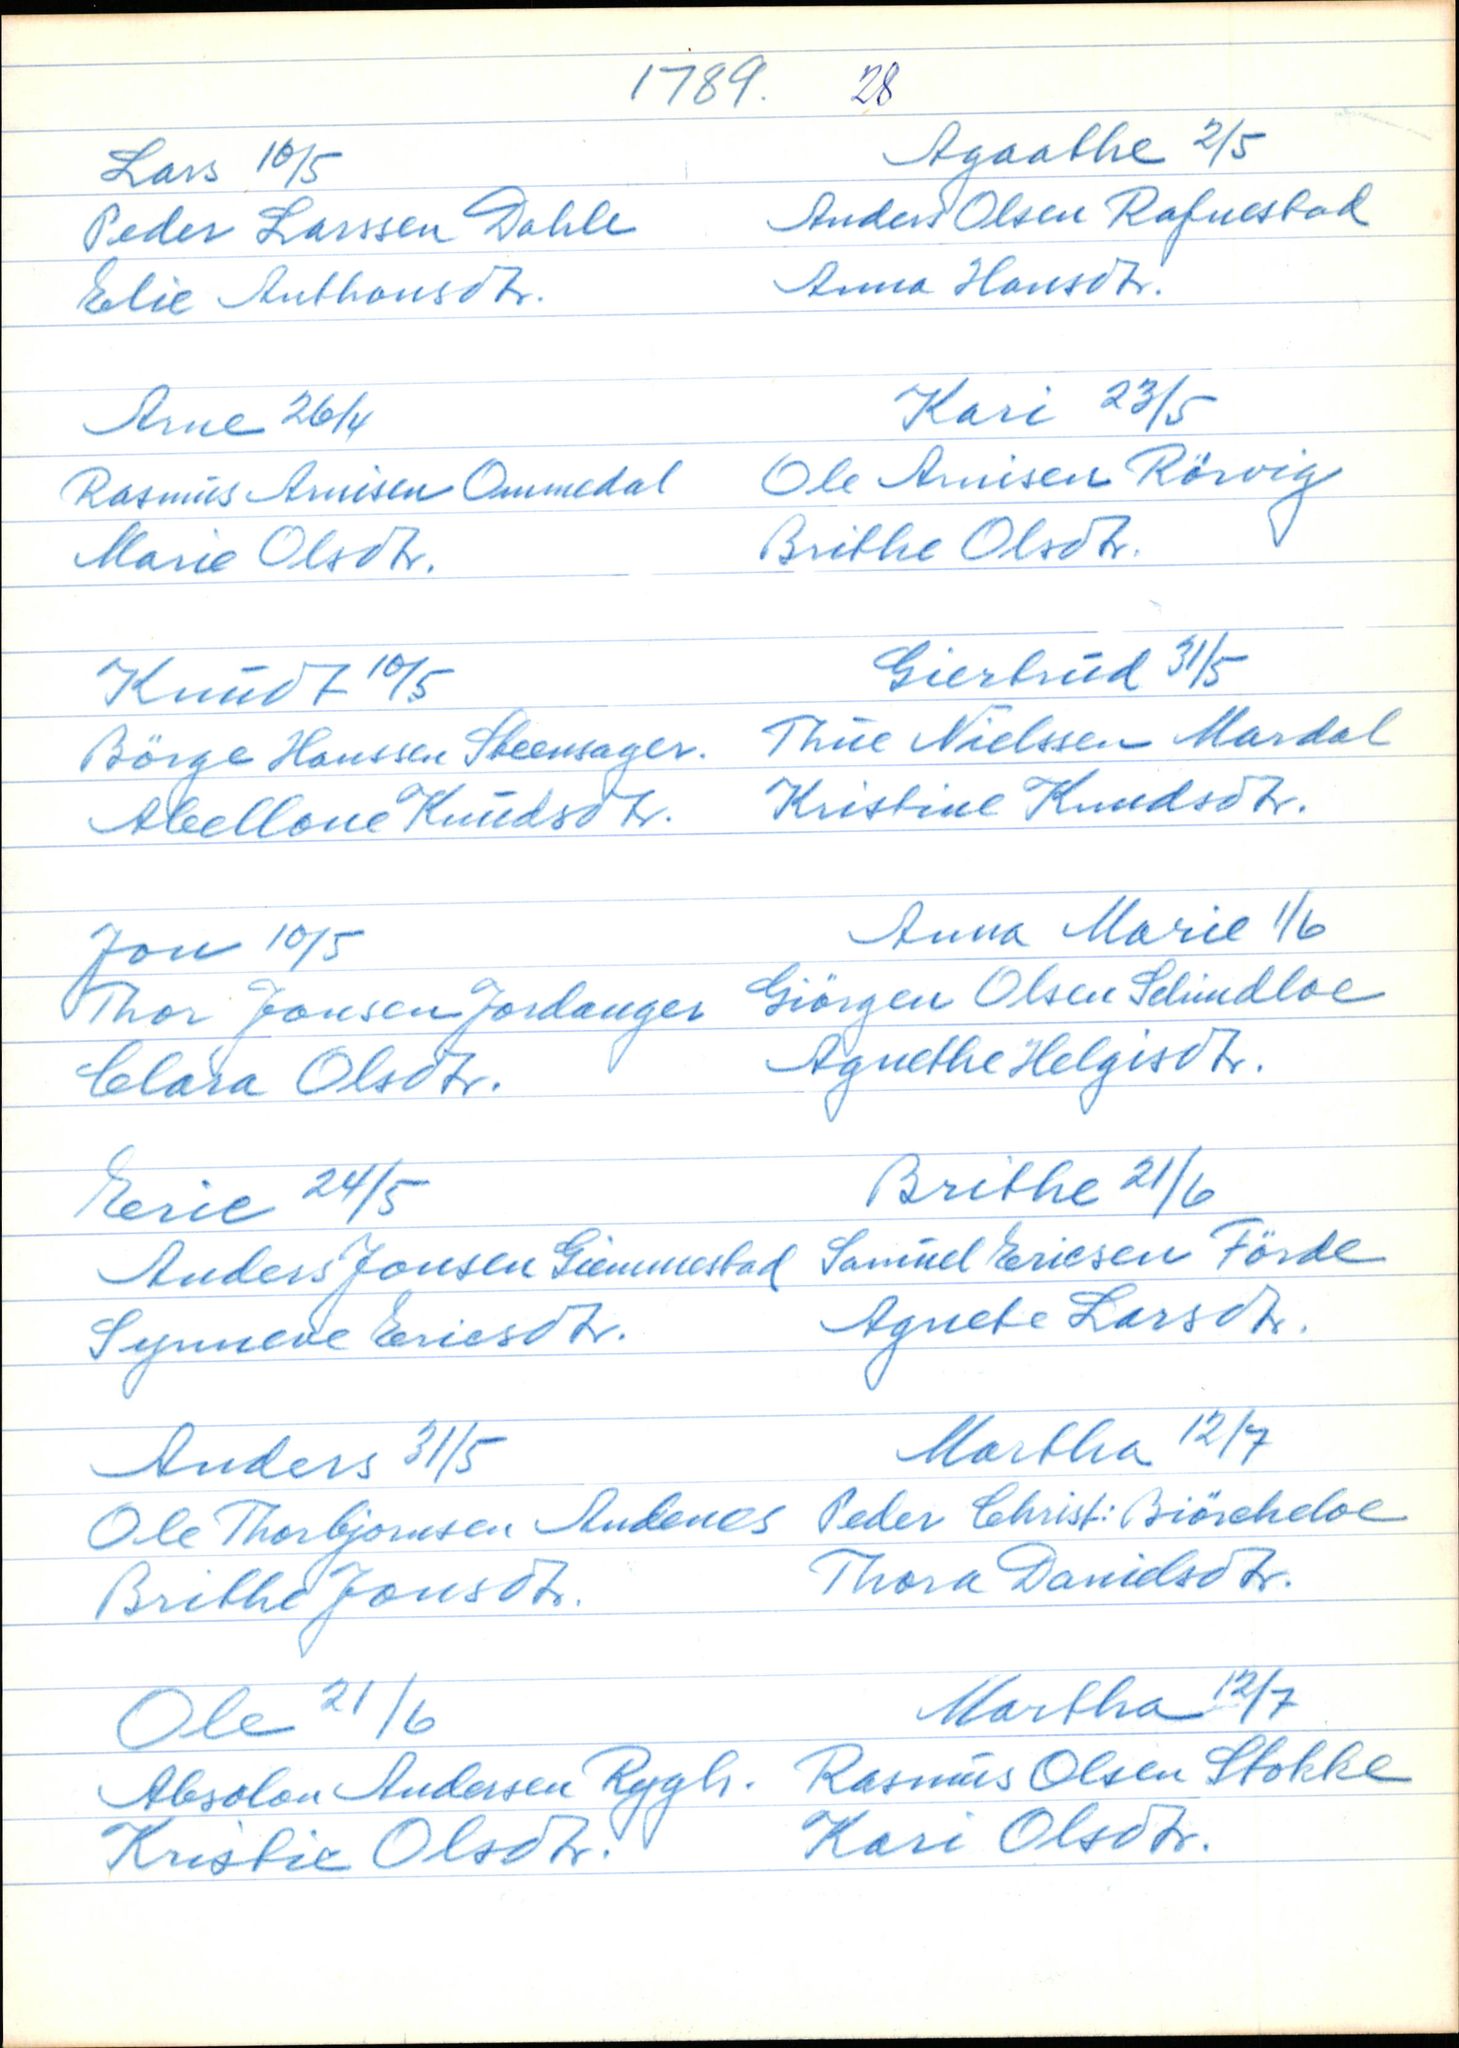 1789. 28
Lars 10/5
Peder Larssen Dahle
Elie Anthonsdtr.
Arne 26/4
Rasmus Arnisen Ommedal
Marie Olsdtr.
Knudt 10/5
Börge Hanssen Steensager.
Abellone Knudsdtr.
Jon 10/5
Thor Jonsen Jordanger
Clara Olsdtr.
Eeric 24/5
Anders Jonsen Giemmestad
Synneve Ericsdtr.
Anders 31/5
Ole Thorbjornsen Andenes
Brithe Jonsdtr.
Ole 21/6
Absolon Andersen Rygh.
Kristie Olsdtr.
Agaathe 2/5
Anders Olsen Rafnestad
Anna Hansdtr.
Kari 23/5
Ole Arnisen Rörvig
Brithe Olsdtr.
Giertrud 31/5
Thue Nielssen Mardal
Kristine Knudsdtr.
Anna Marie 1/6
Giörgen Olsen
Agnethe Helgisdtr.
Brithe 21/6
Samuel Ericsen Förde
Agnete Larsdtr.
Martha 12/7
Peder Christ: Biörcheloe
Thora Danielsdtr.
Martha 12/7
Rasmus Olsen Stokke
Kari Olsdtr.